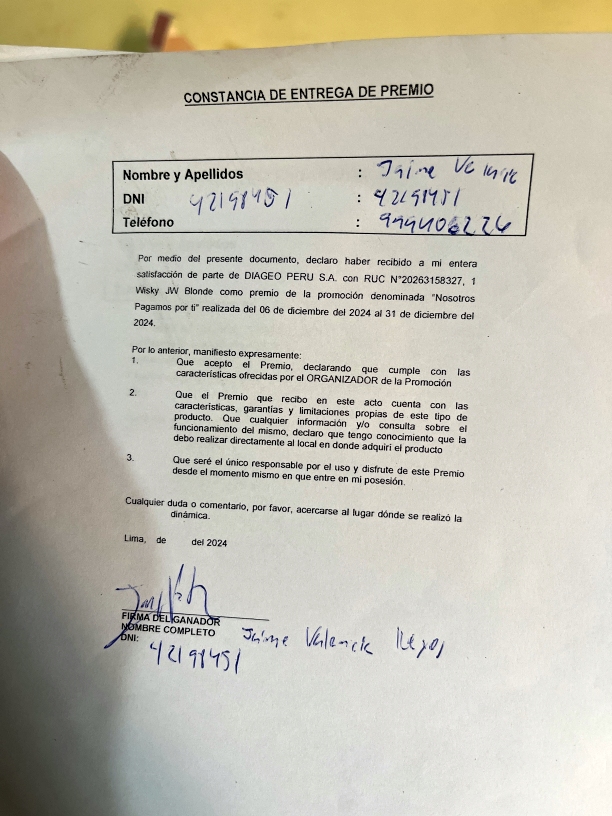 CONSTANCIA DE ENTREGA DE PREMIO
Nombre y Apellidos : Jaime
DNI 42198451 : 42198451
Teléfono :
Por medio del presente documento, declaro haber recibido a mi entera
satisfacción de parte de DIAGEO PERU S.A. con RUC N°20263158327, 1
Wisky JW Blonde como premio de la promoción denominada "Nosotros
Pagamos por ti" realizada del 06 de diciembre del 2024 al 31 de diciembre del
2024.
Por lo anterior, manifiesto expresamente:
1. Que acepto el Premio, declarando que cumple con las
características ofrecidas por el ORGANIZADOR de la Promoción
2. Que el Premio que recibo en este acto cuenta con las
características, garantías y limitaciones propias de este tipo de
producto. Que cualquier información y/o consulta sobre el
funcionamiento del mismo, declaro que tengo conocimiento que la
debo realizar directamente al local en donde adquirí el producto
3. Que seré el único responsable por el uso y disfrute de este Premio
desde el momento mismo en que entre en mi posesión.
Cualquier duda o comentario, por favor, acercarse al lugar dónde se realizó la
dinámica.
Lima, de del 2024
FIRMA DEL GANADOR
NOMBRE COMPLETO Jaime Valencia
DNI: 42198451